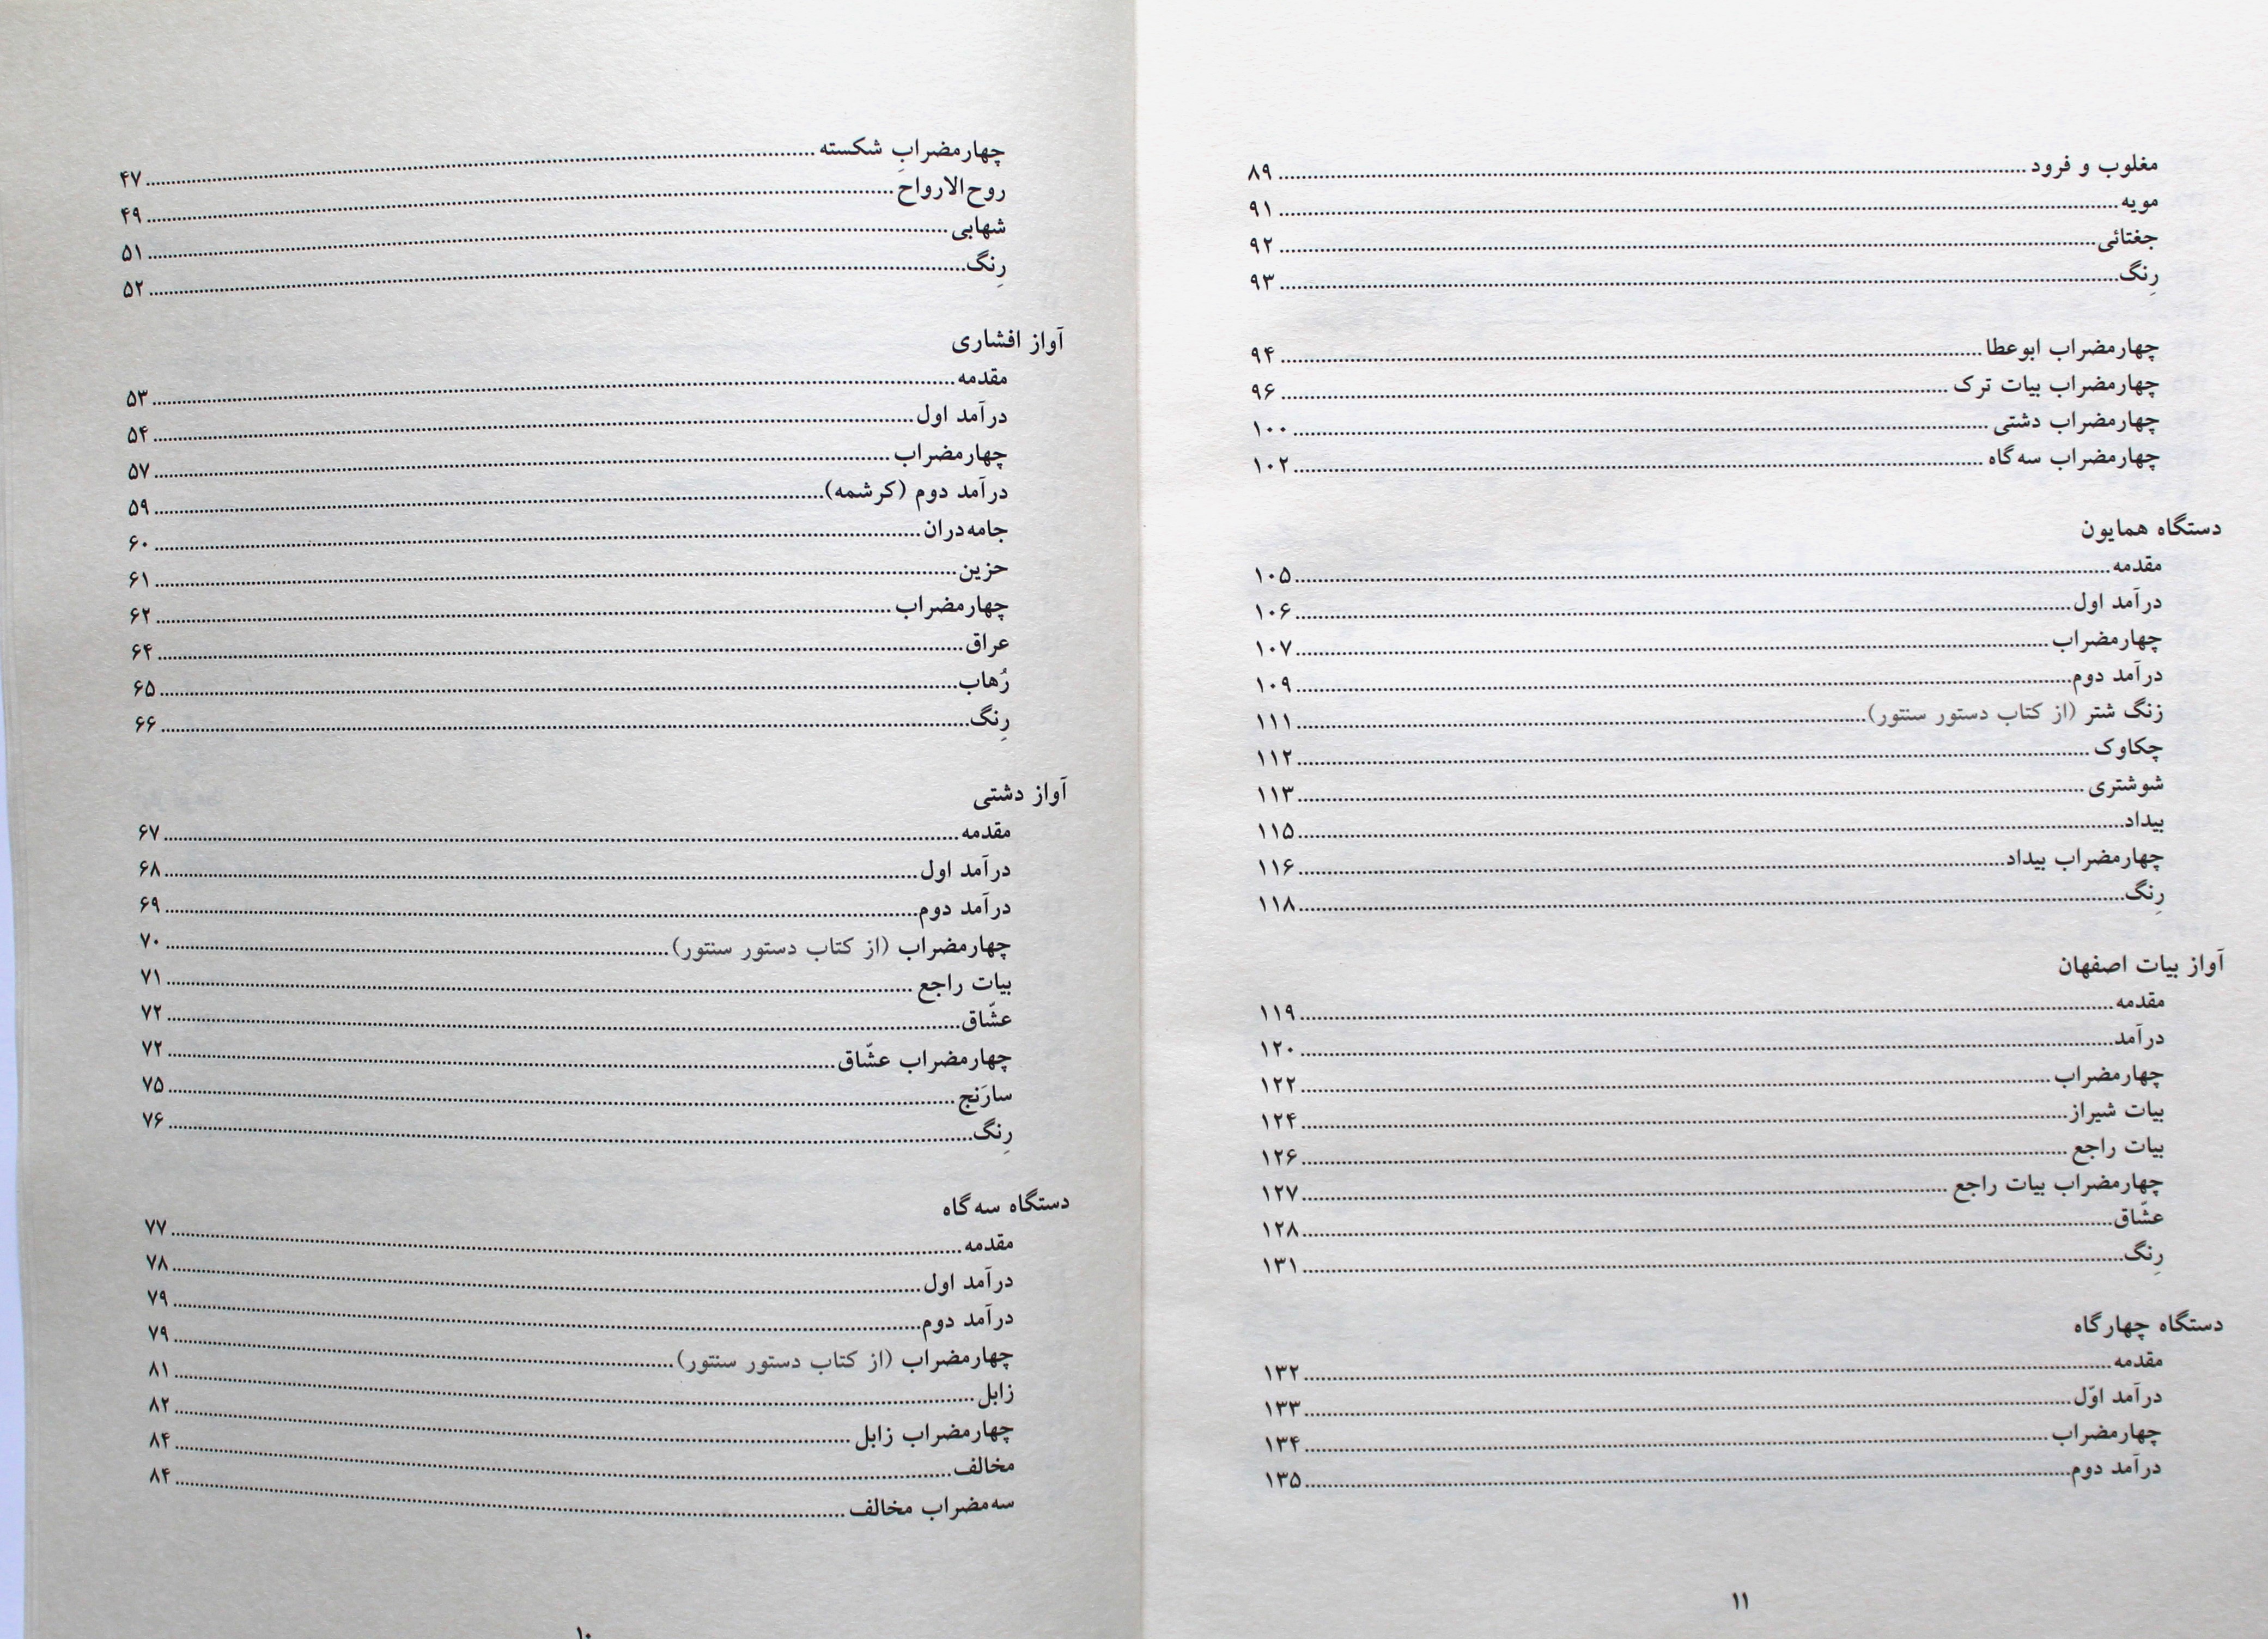 چهارمضرابِ شکسته ........ ۴۷
روح‌الارواح ........ ۴۹
شهابی ........ ۵۱
رِنگ ........ ۵۲
آواز افشاری
مقدمه ........ ۵۳
درآمد اول ........ ۵۴
چهارمضراب ........ ۵۷
درآمد دوم (کرشمه) ........ ۵۹
جامه‌دران ........ ۶۰
حزین ........ ۶۱
چهارمضراب ........ ۶۲
عراق ........ ۶۴
رُهاب ........ ۶۵
رِنگ ........ ۶۶
آواز دشتی
مقدمه ........ ۶۷
درآمد اول ........ ۶۸
درآمد دوم ........ ۶۹
چهارمضراب (از کتاب دستور سنتور) ........ ۷۰
بیات راجع ........ ۷۱
عشّاق ........ ۷۲
چهارمضراب عشّاق ........ ۷۲
سارَنج ........ ۷۵
رِنگ ........ ۷۶
دستگاه سه‌گاه
مقدمه ........ ۷۷
درآمد اول ........ ۷۸
درآمد دوم ........ ۷۹
چهارمضراب (از کتاب دستور سنتور) ........ ۷۹
زابل ........ ۸۱
چهارمضراب زابل ........ ۸۲
مخالف ........ ۸۴
سه‌مضراب مخالف ........ ۸۴
۱۰
مغلوب و فرود ........ ۸۹
مویه ........ ۹۱
جغتائی ........ ۹۲
رِنگ ........ ۹۳
چهارمضراب ابوعطا ........ ۹۴
چهارمضراب بیات ترک ........ ۹۶
چهارمضراب دشتی ........ ۱۰۰
چهارمضراب سه‌گاه ........ ۱۰۲
دستگاه همایون
مقدمه ........ ۱۰۵
درآمد اول ........ ۱۰۶
چهارمضراب ........ ۱۰۷
درآمد دوم ........ ۱۰۹
زنگ شتر (از کتاب دستور سنتور) ........ ۱۱۱
چکاوک ........ ۱۱۲
شوشتری ........ ۱۱۳
بیداد ........ ۱۱۵
چهارمضراب بیداد ........ ۱۱۶
رِنگ ........ ۱۱۸
آواز بیات اصفهان
مقدمه ........ ۱۱۹
درآمد ........ ۱۲۰
چهارمضراب ........ ۱۲۲
بیات شیراز ........ ۱۲۴
بیات راجع ........ ۱۲۶
چهارمضراب بیات راجع ........ ۱۲۷
عشّاق ........ ۱۲۸
رِنگ ........ ۱۳۱
دستگاه چهارگاه
مقدمه ........ ۱۳۲
درآمد اوّل ........ ۱۳۳
چهارمضراب ........ ۱۳۴
درآمد دوم ........ ۱۳۵
۱۱